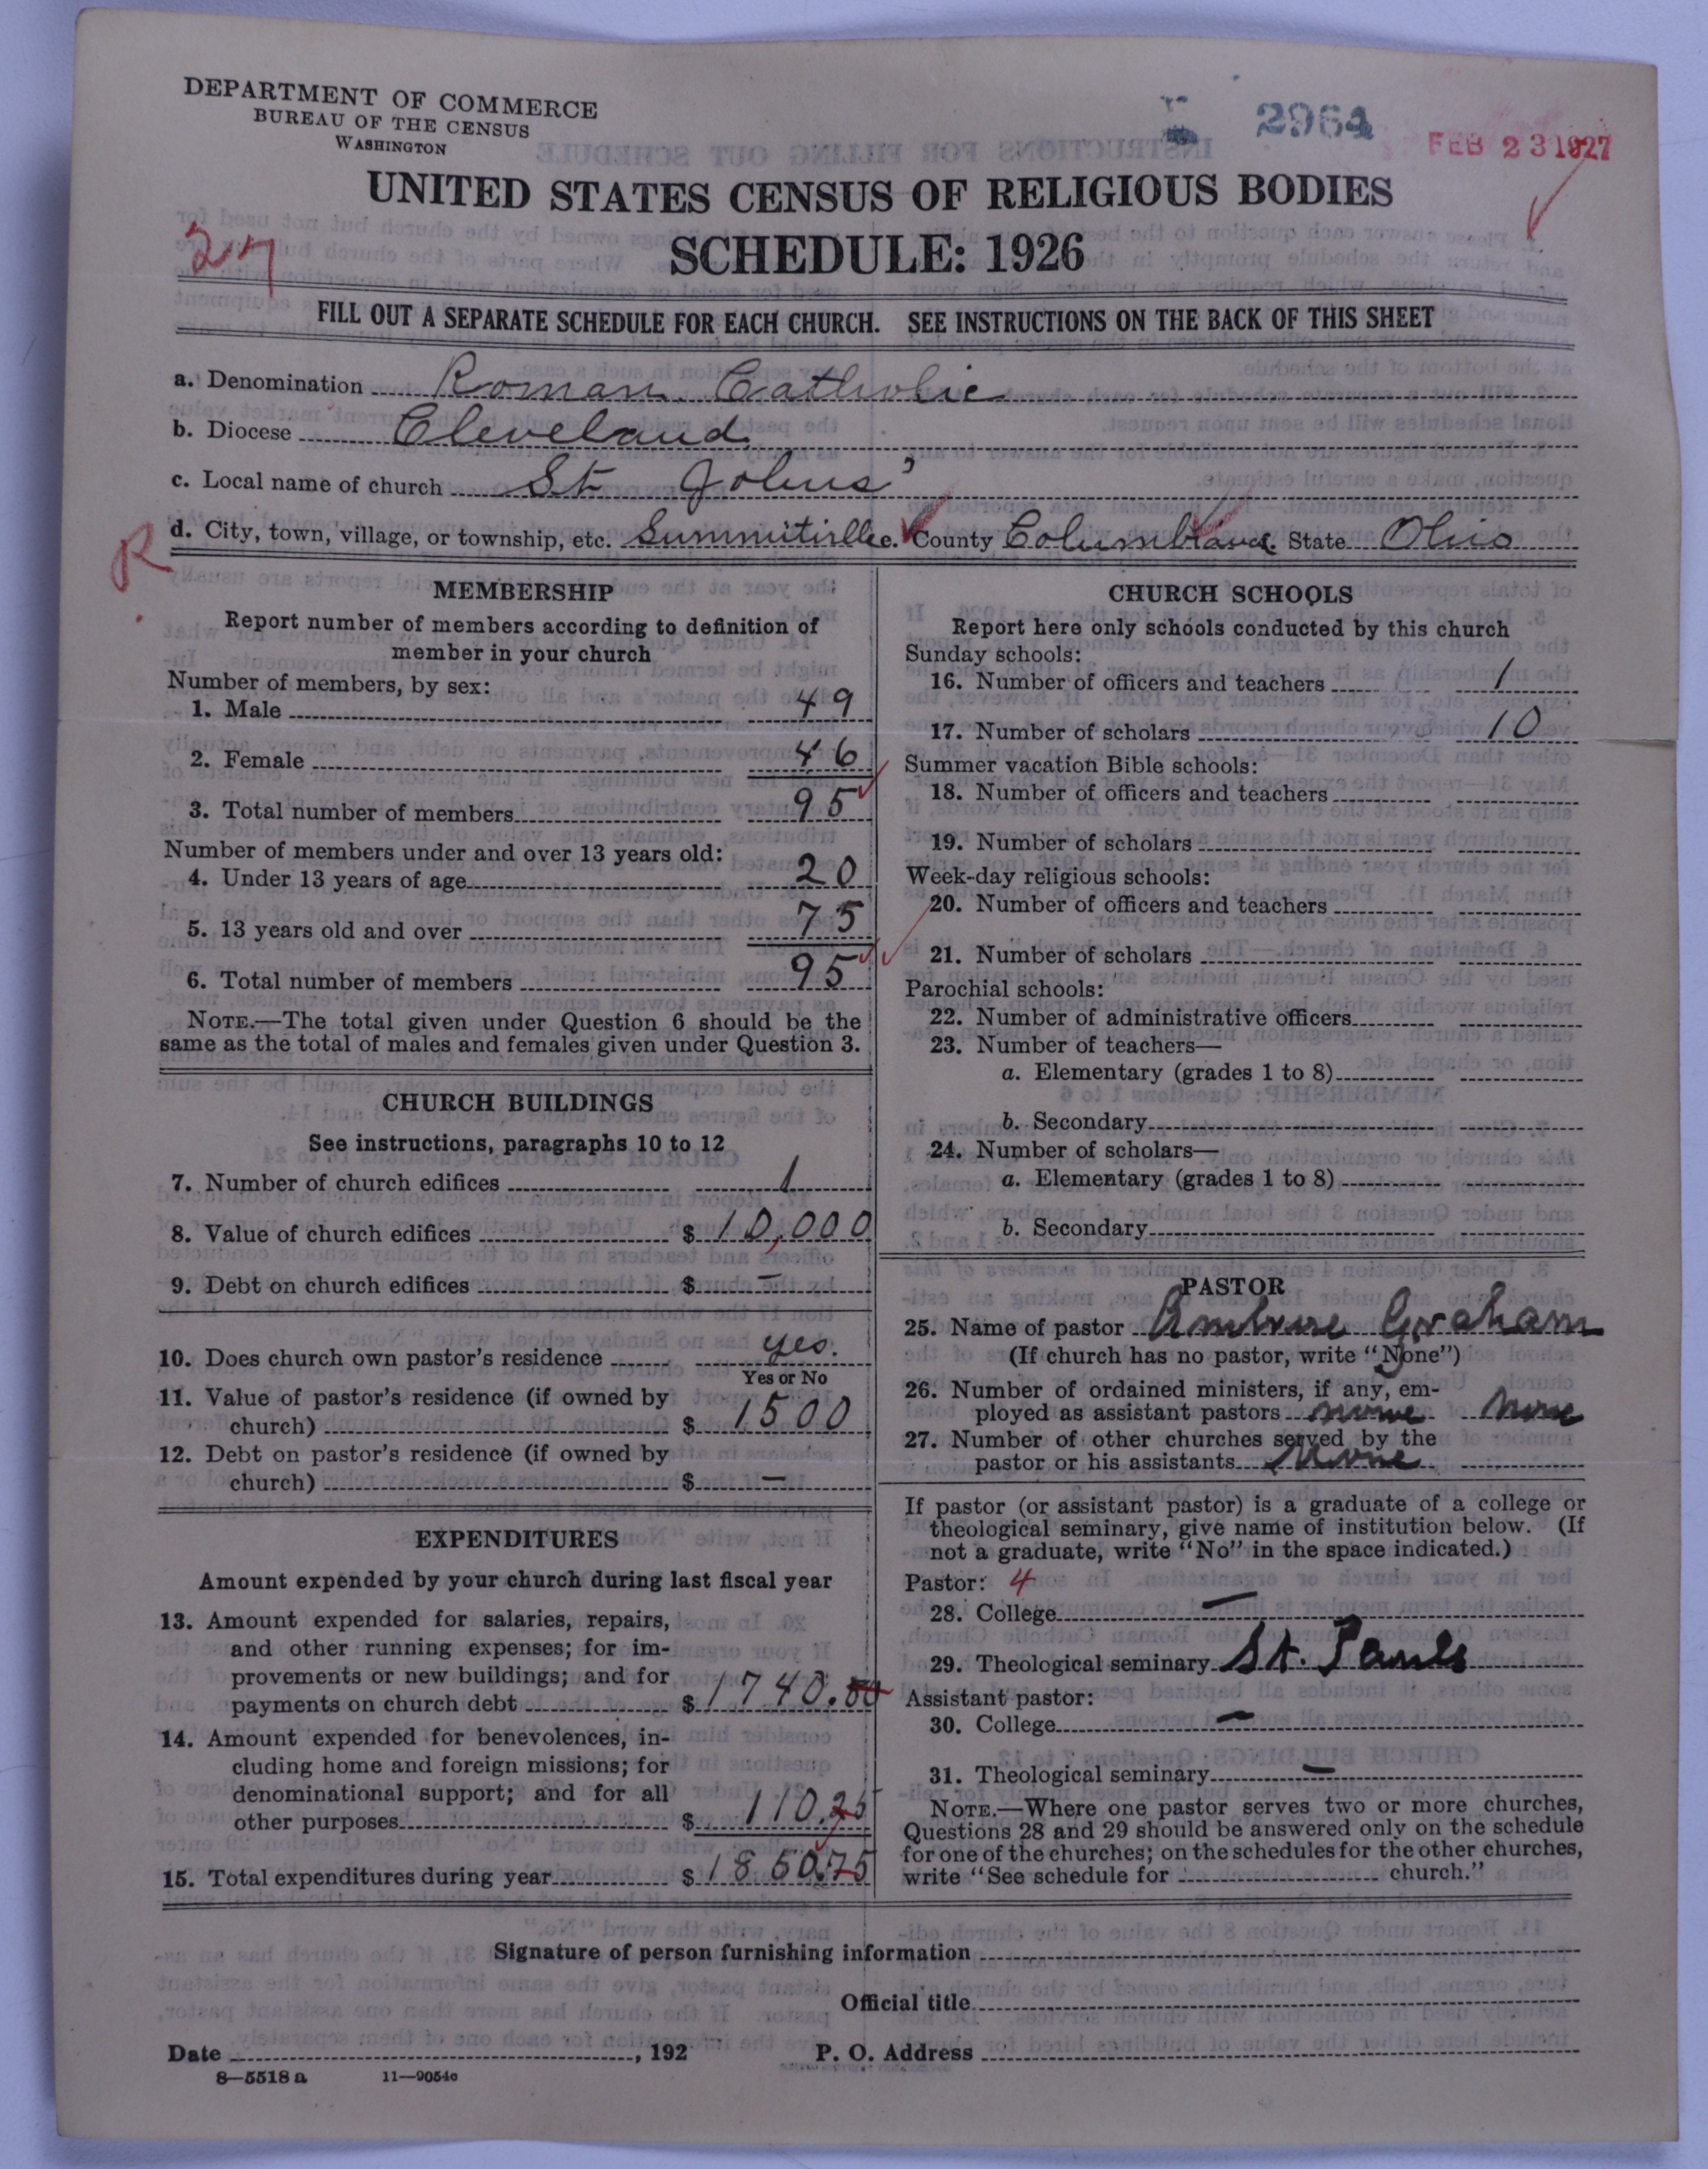 DEPARTMENT OF COMMERCE
BUREAU OF THE CENSUS
WASHINGTON
2964
FEB 23 1927
UNITED STATES CENSUS OF RELIGIOUS BODIES
SCHEDULE: 1926
27
FILL OUT A SEPARATE SCHEDULE FOR EACH CHURCH. SEE INSTRUCTIONS ON THE BACK OF THIS SHEET
a. Denomination Roman Catholic
b. Diocese Cleveland
c. Local name of church St Johns'
R
d. City, town, village, or township, etc. Summitville. County Columbiana. State Ohio
MEMBERSHIP
Report number of members according to definition of
member in your church
Number of members, by sex:
1. Male 49
2. Female 46
3. Total number of members 95
Number of members under and over 13 years old:
4. Under 13 years of age 20
5. 13 years old and over 75
6. Total number of members 95
NOTE.—The total given under Question 6 should be the
same as the total of males and females given under Question 3.
CHURCH BUILDINGS
See instructions, paragraphs 10 to 12
7. Number of church edifices 1
8. Value of church edifices $ 10,000
9. Debt on church edifices $ —
10. Does church own pastor's residence yes.
Yes or No
11. Value of pastor's residence (if owned by
church) $ 1500
12. Debt on pastor's residence (if owned by
church) $ —
EXPENDITURES
Amount expended by your church during last fiscal year
13. Amount expended for salaries, repairs,
and other running expenses; for im-
provements or new buildings; and for
payments on church debt $ 1740.
14. Amount expended for benevolences, in-
cluding home and foreign missions; for
denominational support; and for all
other purposes $ 110.25
15. Total expenditures during year $ 1850.75
CHURCH SCHOOLS
Report here only schools conducted by this church
Sunday schools:
16. Number of officers and teachers 1
17. Number of scholars 10
Summer vacation Bible schools:
18. Number of officers and teachers
19. Number of scholars
Week-day religious schools:
20. Number of officers and teachers
21. Number of scholars
Parochial schools:
22. Number of administrative officers
23. Number of teachers—
a. Elementary (grades 1 to 8)
b. Secondary
24. Number of scholars—
a. Elementary (grades 1 to 8)
b. Secondary
PASTOR
25. Name of pastor Ambrose Graham
(If church has no pastor, write "None")
26. Number of ordained ministers, if any, em-
ployed as assistant pastors none none
27. Number of other churches served by the
pastor or his assistants None
If pastor (or assistant pastor) is a graduate of a college or
theological seminary, give name of institution below. (If
not a graduate, write "No" in the space indicated.)
Pastor: 4
28. College —
29. Theological seminary St. Pauls
Assistant pastor:
30. College —
31. Theological seminary —
NOTE.—Where one pastor serves two or more churches,
Questions 28 and 29 should be answered only on the schedule
for one of the churches; on the schedules for the other churches,
write "See schedule for church."
Signature of person furnishing information
Official title
Date , 192 P. O. Address
8—5518 a 11—9054c